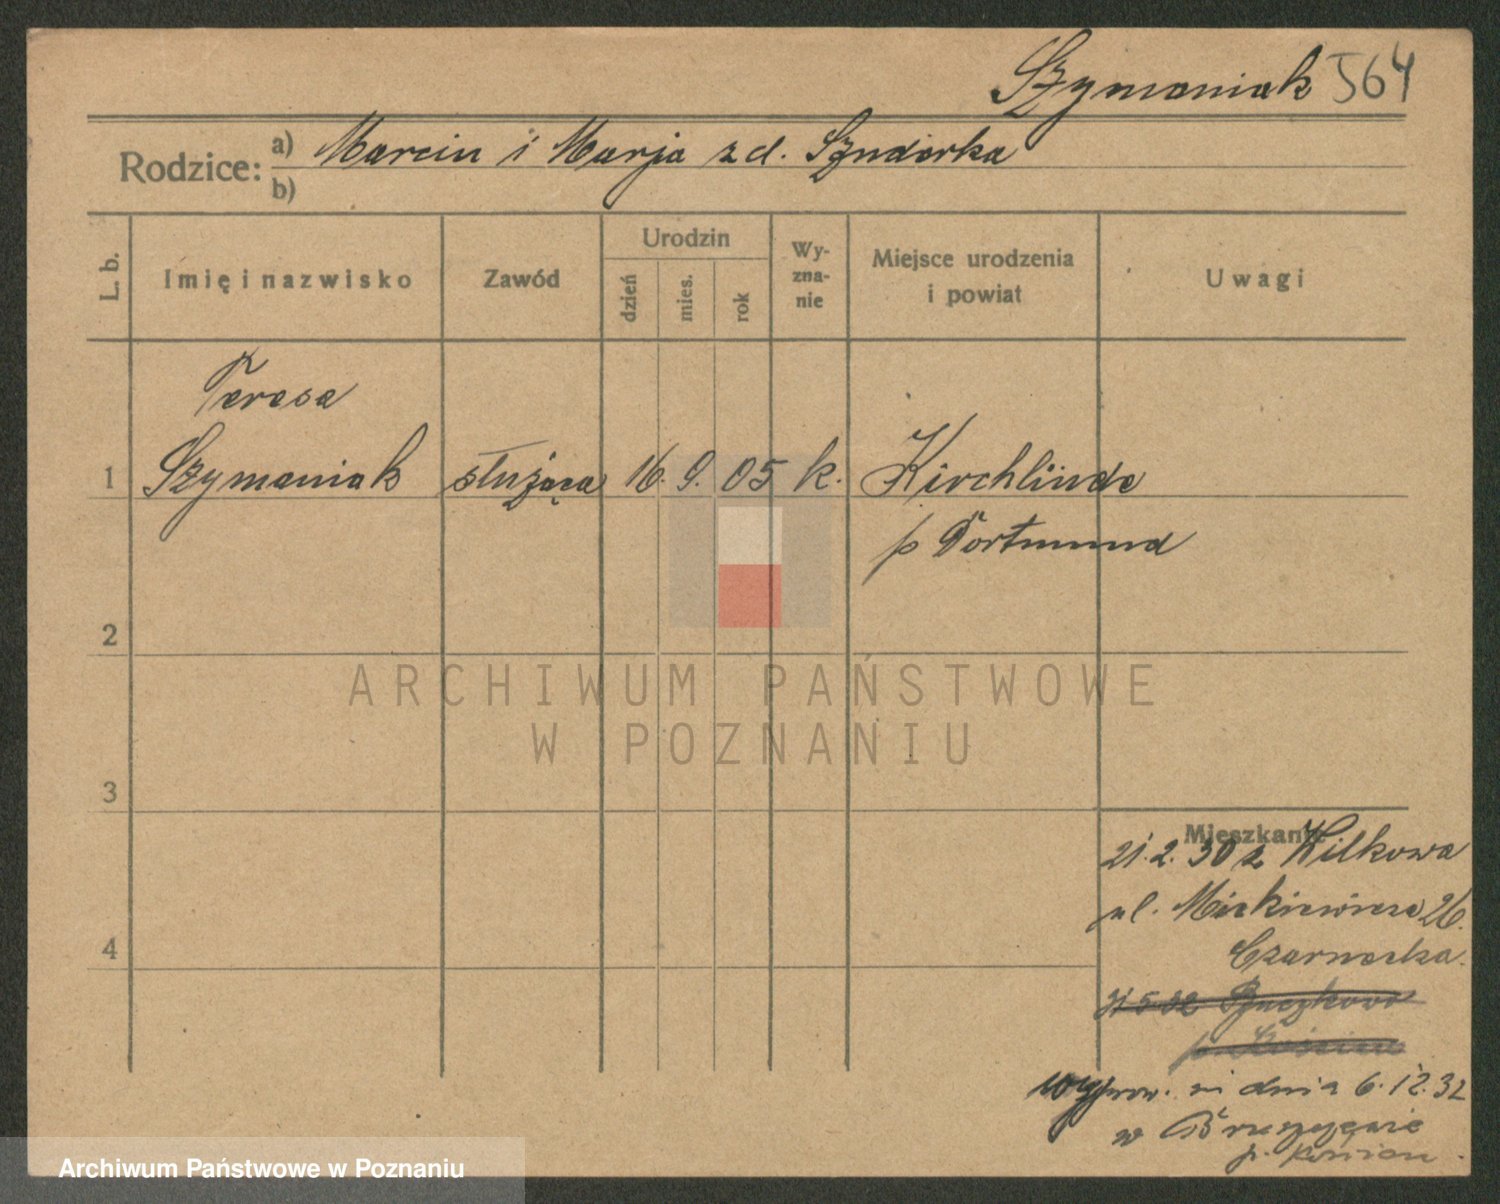 Szymaniak 564
Rodzice: a) Marcin i Marja z d. Szudorka
b)
L. b.
Imię i nazwisko
Zawód
Urodzin
dzień
mies.
rok
Wy-
zna-
nie
Miejsce urodzenia
i powiat
Uwagi
Teresa
1 Szymaniak służąca 16. 9. 05 k. Kirchlinde
p Dortmund
2
ARCHIWUM PAŃSTWOWE
W POZNANIU
3
Mieszkanie
21.2.30 z Wilkowa
ul. Mickiewicza 26.
Czarnecka.
31 5 32
wyprow. w dnia 6.12.32
w
p. Kościan.
4
Archiwum Państwowe w Poznaniu